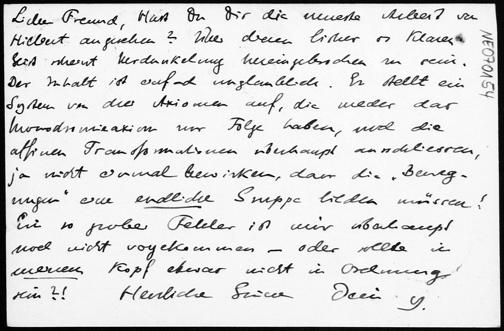 Lieber Freund, Hast Du Dir die neueste Arbeit von
Hilbert angesehen? Über diesen bisher so klaren
Geist scheint Verdunkelung hereingebrochen zu sein.
Der Inhalt ist einfach unglaublich. Er stellt ein
System von drei Axiomen auf, die weder das
Monodromieaxiom zur Folge haben, noch die
affinen Transformationen überhaupt ausschliessen,
ja nicht einmal bewirken, dass die „Beweg-
ungen" eine endliche Gruppe bilden müssen!
Ein so grober Fehler ist mir überhaupt
noch nicht vorgekommen – oder sollte in
meinem Kopf etwas nicht in Ordnung
sein?! Herzliche Grüsse Dein
NE070154